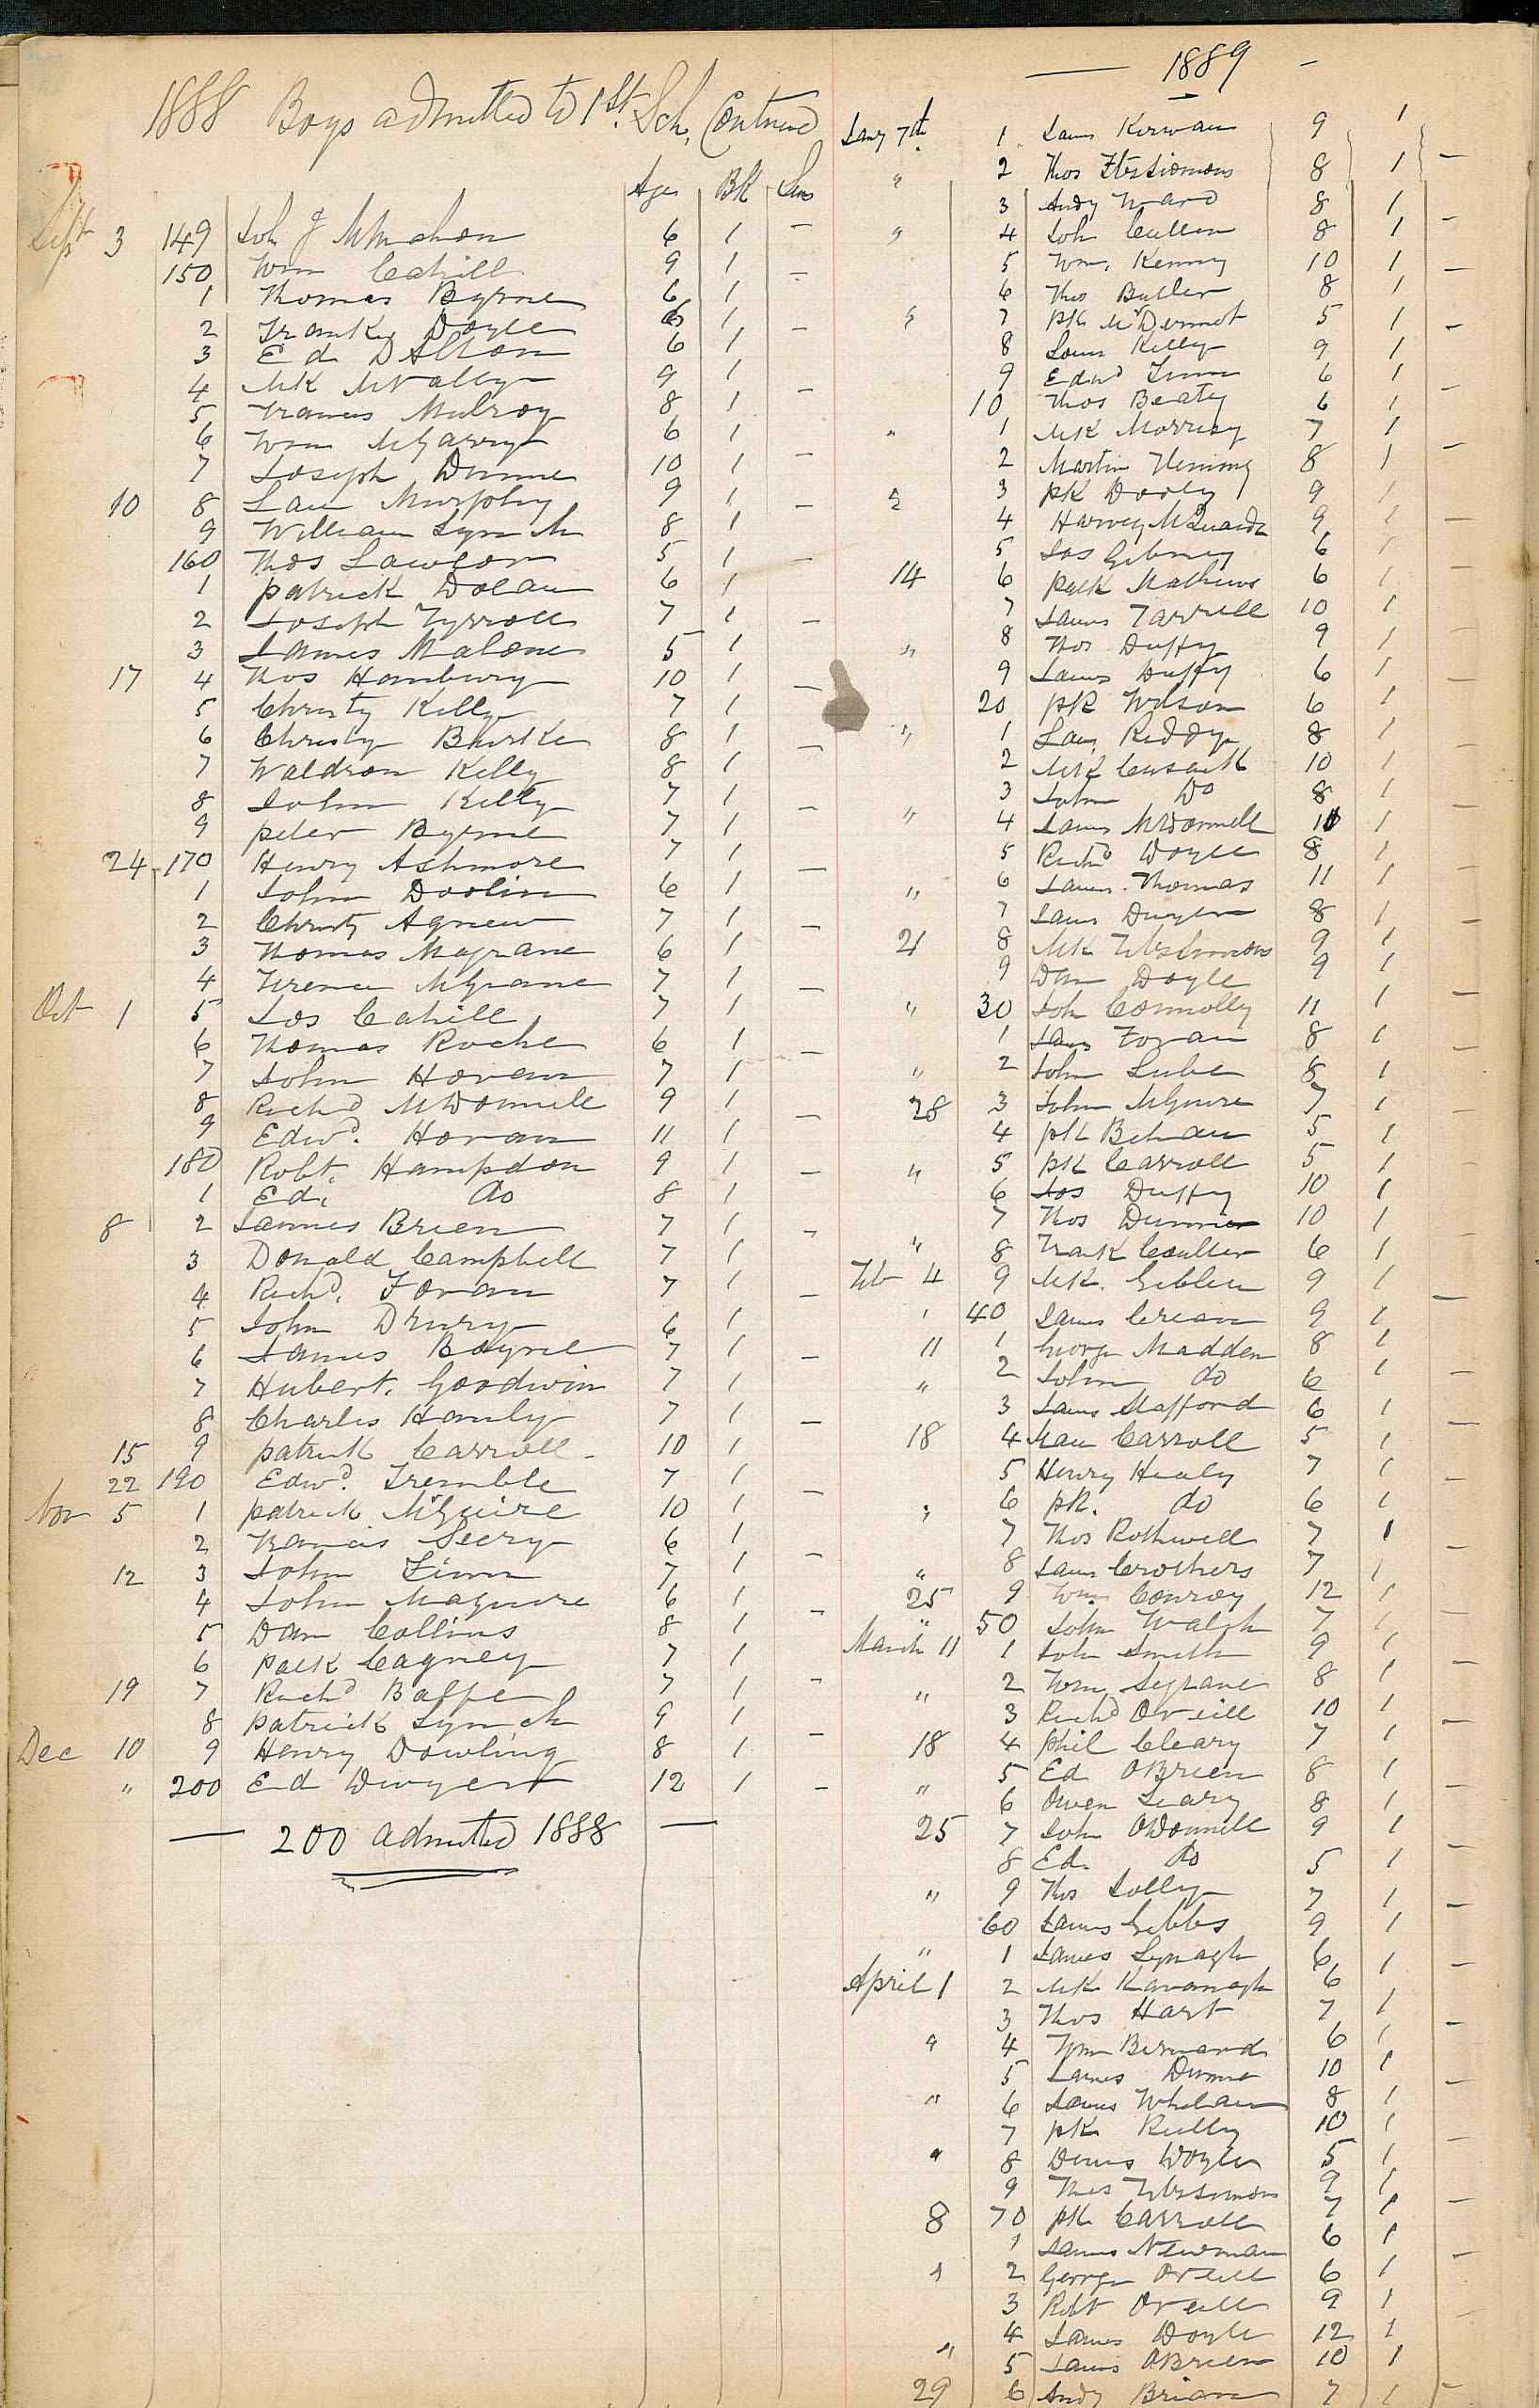 1888 Boys admitted to 1st. Sch. Continued
Age BK
Sept 3 149 Joh J McMahon 6 1 -
150 Wm Cahill 9 1 -
1 Thomas Byrne 6 1
2 Franky Doyle 6 1 -
3 Ed Dillon 6 1
4 MK McNally 9 1 -
5 Francis Mulroy 8 1
6 Wm McGarry 6 1 -
7 Joseph Dunne 10 1
10 8 Lau Murphy 9 1 -
9 William Lynch 8 1
160 Thos Lawlor 5 1 -
1 Patrick Dolan 6 1
2 Joseph Tyrroll 7 1 -
3 James Malone 5 1
17 4 Thos Hambury 10 1 -
5 Christy Kelly 7 1
6 Christy Bourke 8 1 -
7 Waldron Kelly 8 1
8 John Kelly 7 1 -
9 Peter Byrne 7 1
24 170 Henry Ashmore 7 1 -
1 John Doolin 6 1
2 Christy Agnew 7 1 -
3 Thomas Magrane 6 1
4 Terence McGrane 7 1 -
Oct 1 5 Jos Cahill 7 1
6 Thomas Roche 6 1 -
7 John Horan 7 1
8 Richd McDonnell 9 1 -
9 Edwd. Horan 11 1
180 Robt. Hampdon 9 1 -
1 Ed. do 8 1
8 2 James Brien 7 1 -
3 Donald Campbell 7 1
4 Richd. Foran 7 1 -
5 John Drury 6 1
6 James Boyne 7 1 -
7 Hubert. Goodwin 7 1
8 Charles Hanly 7 1 -
15 9 Patrick Carroll 10 1
22 190 Edwd. Tremble 7 1 -
Nov 5 1 Patrick McGuire 10 1
2 Francis Seery 6 1 -
12 3 John Finn 7 1
4 John Maguire 6 1 -
5 Dan Collins 8 1
6 Patk Cagney 7 1 -
19 7 Richd Balfe 7 1
8 Patrick Lynch 9 1 -
Dec 10 9 Henry Dowling 8 1
" 200 Ed Dwyer 12 1 -
— 200 admitted 1888 —
— 1889 -
Jany 7th. 1 James Kirwan 9 1
" 2 Thos Fitzsimons 8 1 -
3 Andy Ward 8 1
" 4 Joh Cullen 8 1 -
5 Wm. Kenny 10 1
6 Thos Butler 8 1
" 7 PK McDermot 5 1
8 James Kelly 9 1
9 Edwd Finn 6 1
10 Thos Beaty 6 1
" 1 MK Morrisy 7 1
2 Martin Fleming 8 1
" 3 PK Dooly 9 1
4 Harvey McQuaide 9 1
5 Jos Gibney 6 1
14 6 Patk Mathews 6 1
7 James Farrell 10 1
" 8 Thos Duffy 9 1
9 James Duffy 6 1
20 PK Wilson 6 1
" 1 Lau. Reddy 8 1
2 MK Cusack 10 1
3 John Do 8 1
" 4 James McDonnell 10 1
5 Richd Doyle 8 1
" 6 James Thomas 11 1
7 James Dwyer 8 1
21 8 MK Fitzsimons 9 1
9 Dan Doyle 9 1
" 30 Joh Connolly 11 1
1 James Foran 8 1
" 2 John Lube 8 1
28 3 John McGuire 7 1
4 PK Behan 5 1
" 5 PK Carroll 5 1
6 Jos Duffy 10 1
7 Thos Dunne 10 1
" 8 Frank Coulter 6 1
Feb 4 9 MK. Giblin 9 1
" 40 James Crean 9 1
11 1 George Madden 8 1
" 2 John do 6 1
3 James Stafford 6 1
18 4 Carroll 5 1
5 Henry Healy 7 1
" 6 PK. do 6 1
7 Thos Rothwell 7 1
" 8 James Crothers 7 1
25 9 Wm. Conroy 12 1
" 50 John Walsh 7 1
March 11 1 Joh Smith 9 1
" 2 8 1
3 Richd O'Neill 10 1
18 4 Phil Cleary 7 1
" 5 Ed O'Brien 8 1
6 Owen Leary 8 1
25 7 John O'Donnell 9 1
8 Ed. do 5 1
" 9 Thos Jolly 7 1
60 James Gibbs 9 1
" 1 James Lynagh 6 1
April 1 2 MK Kavanagh 6
3 Thos Hart 7 1
" 4 Wm Bernard 6 1
5 James Dunne 10 1
" 6 James Whelan 8 1
7 PK Reilly 10 1
" 8 Denis Doyle 5 1
9 Thos Fitzsimons 9 1
8 70 PK Carroll 7 1
1 James Newman 6 1
" 2 George O'Neill 6 1
3 Robt O'Neill 9 1
4 James Doyle 12 1
" 5 James O'Brien 10 1
29 6 Andy Brian 7 1